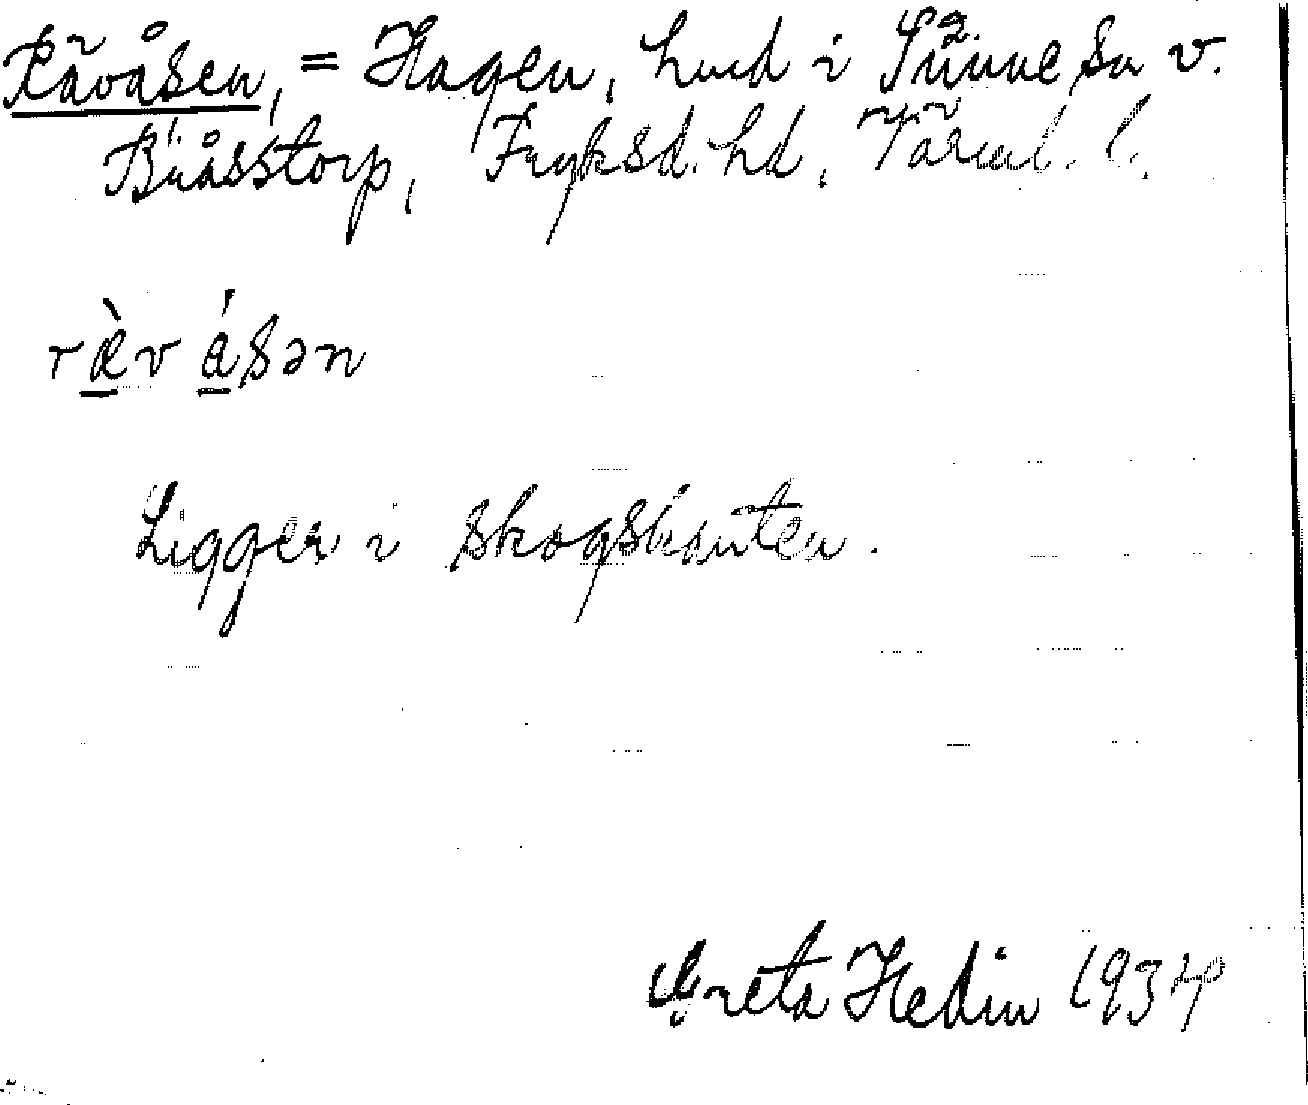 Rävåsen, = Hagen, hmd i Sunne sn v.
Bråsstorp, Fryksd. hd, Värml. l.
ræ̀v åsən
Ligger i skogskanten.
Greta Hedin 1934